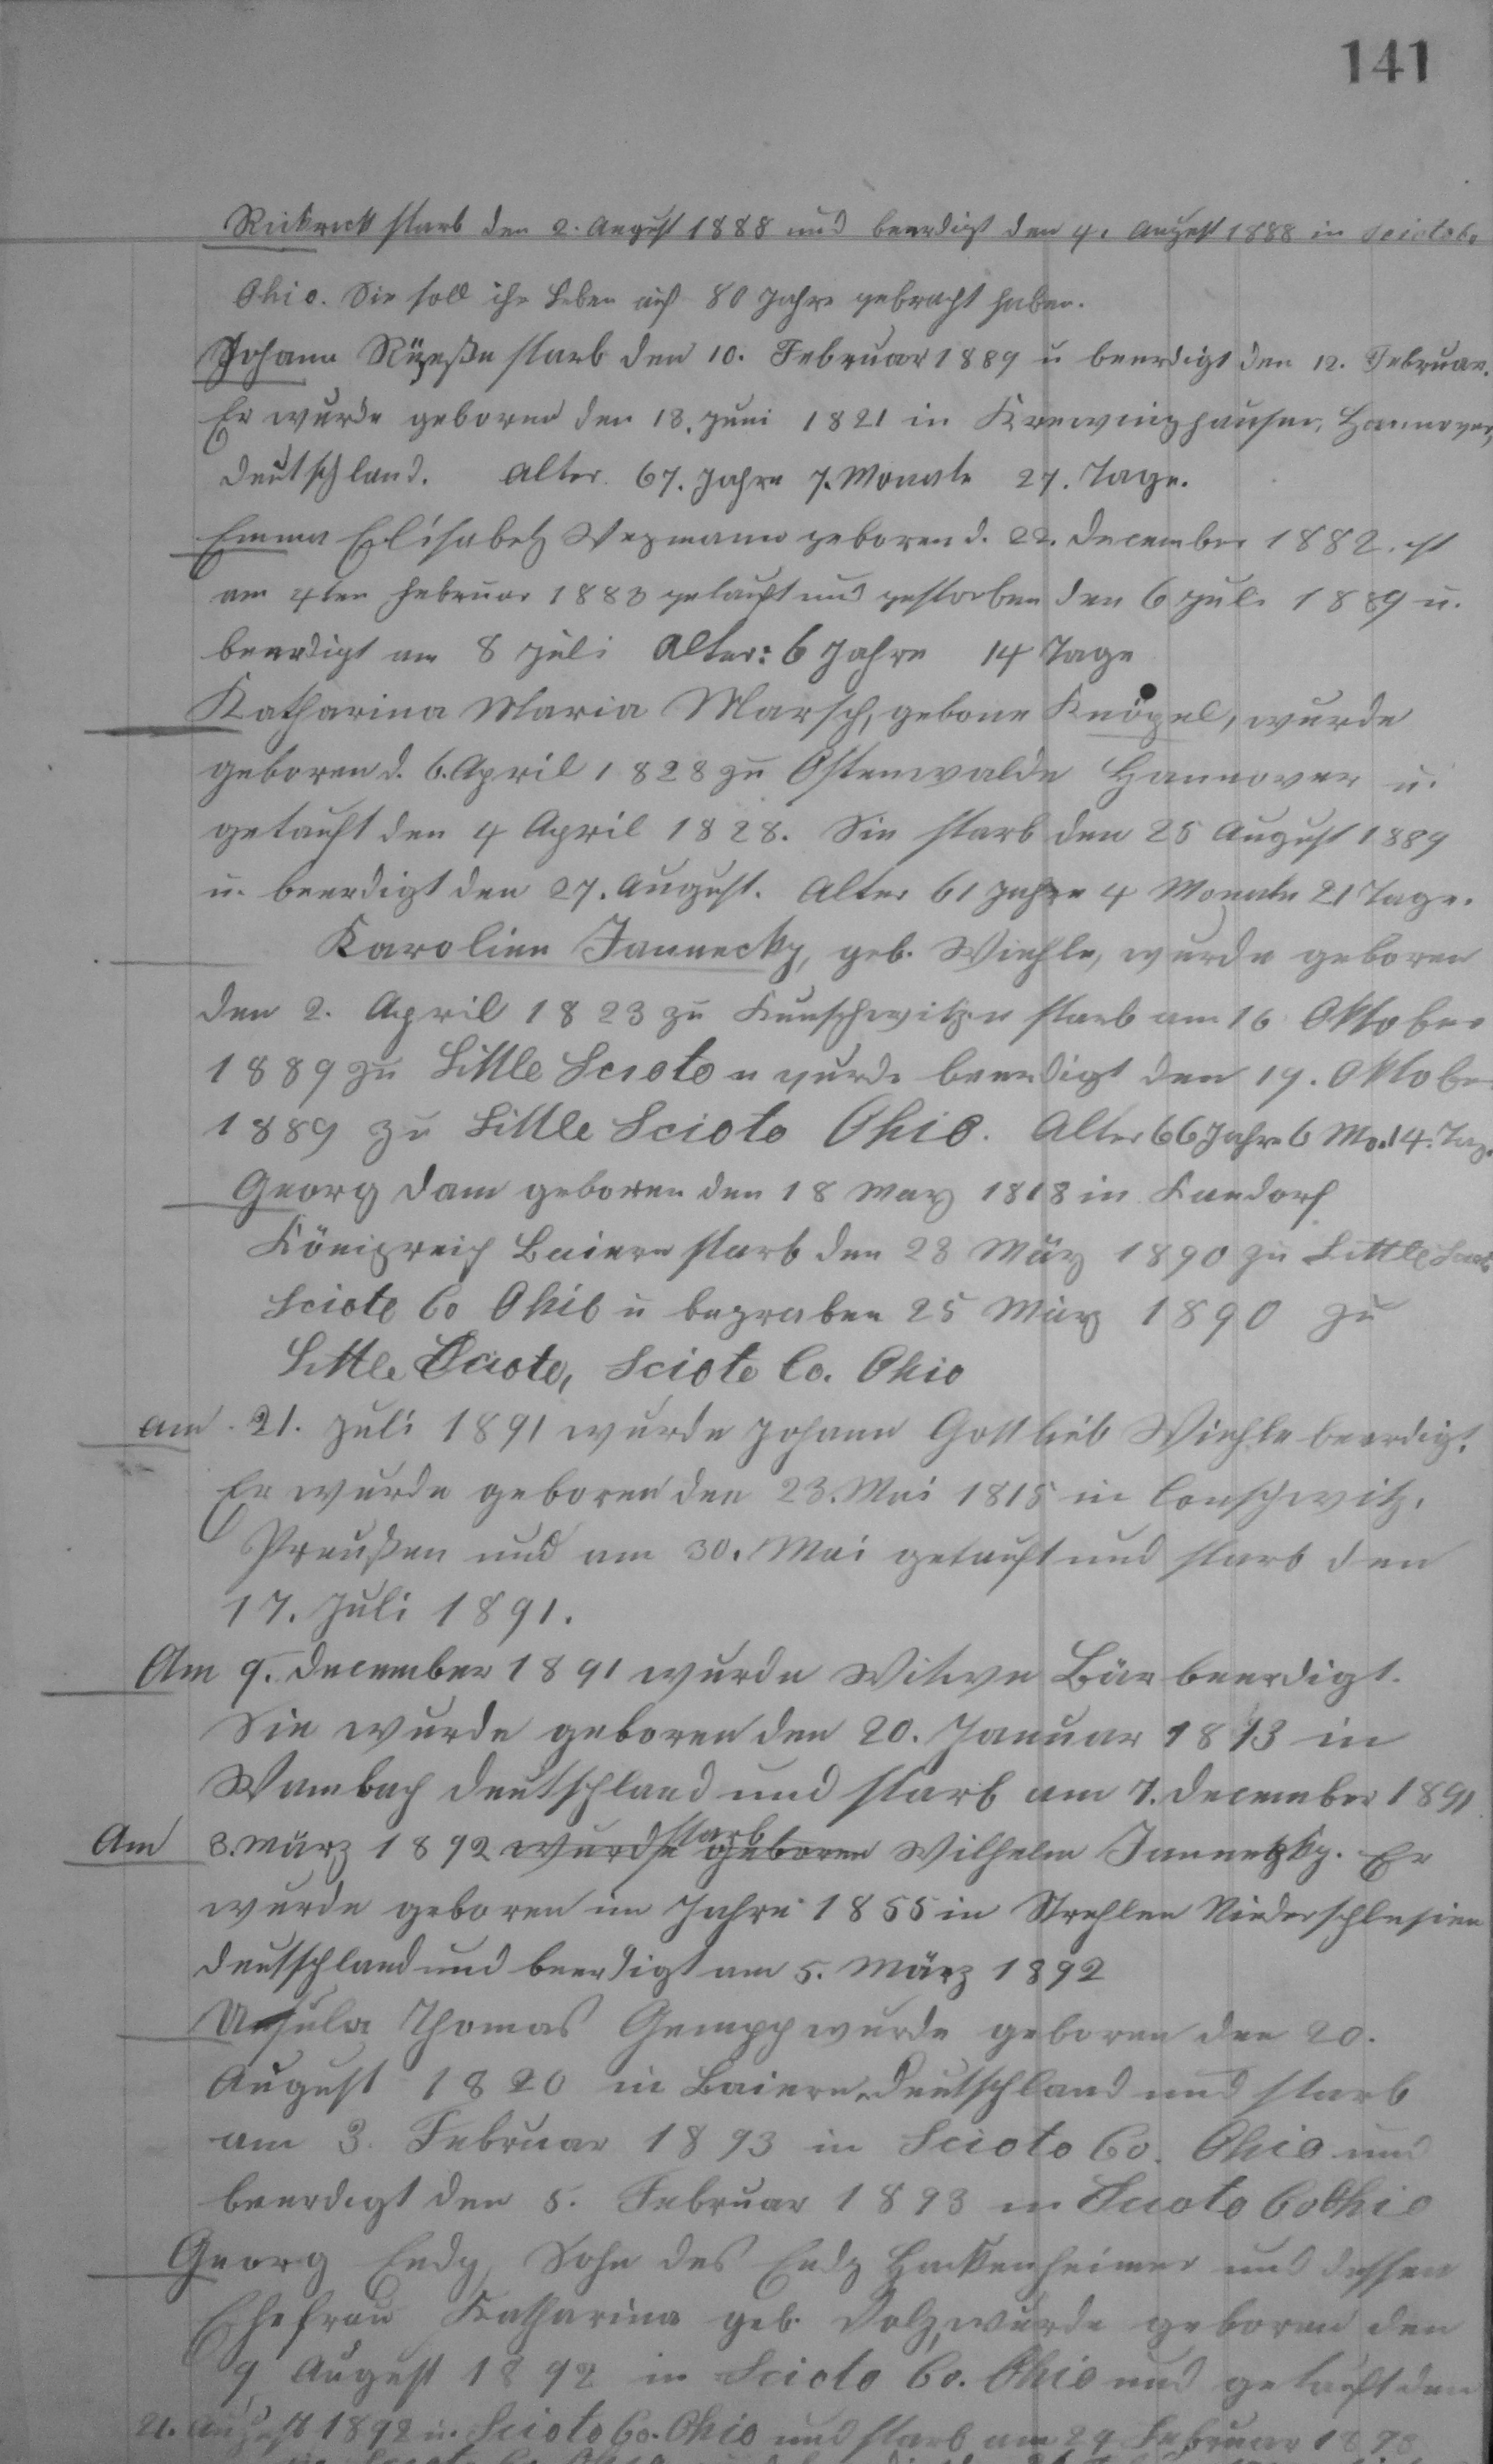 141
Rickrock starb den 2. August 1888 und beerdigt den 4. August 1888 in Scioto Co
Ohio. Sie soll ihr Leben auf 80 Jahre gebracht haben.
Johann starb den 10. Februar 1889 u beerdigt den 12. Februar.
Er wurde geboren den 13. Juni 1821 in Krewinghausen, Hannover,
Deutschland. Alter. 67. Jahre 7. Monate 27. Tage.
Emma Elisabeth Wegmann geboren d. 22. December 1882. ist
am 4ten Februar 1883 getauft und gestorben den 6 Juli 1889 u.
beerdigt am 8 Juli Alter: 6 Jahre 14 Tage
Katharina Maria Marsch, geborne Knöpel, wurde
geboren d. 6. April 1828 zu Ostenwalde Hannover u.
getauft den 4 April 1828. Sie starb den 25 August 1889
u. beerdigt den 27. August. Alter 61 Jahre 4 Monate 21 Tage.
Karoline Jannecky, geb. Wiehle, wurde geboren
den 2. April 1823 zu Kunschwitz u starb am 16 Oktober
1889 zu Little Scioto u wurde beerdigt den 19. Oktober
1889 zu Little Scioto Ohio. Alter 66 Jahre 6 Mo. 14. Tag.
Georg Dam geboren den 18 May 1818 in Kandorf
Königreich Baiern starb den 23 März 1890 zu Little Scioto
Scioto Co Ohio u begraben 25 März 1890 zu
Little Scioto, Scioto Co. Ohio
am 21. Juli 1891 wurde Johann Gottlieb Wiehle beerdigt.
Er wurde geboren den 23. Mai 1815 in Conschwitz,
Preußen und am 30. Mai getauft und starb den
17. Juli 1891.
Am 9. December 1891 wurde Witwe Bär beerdigt.
Sie wurde geboren den 20. Januar 1813 in
Wambach Deutschland und starb am 7. December 1891
Am 3. März 1892 wurde geboren starb Wilhelm Jannetzky. Er
wurde geboren im Jahre 1855 in Strehlen Niederschlesien
Deutschland und beerdigt am 5. März 1892
Ursula Thomas Gempp wurde geboren den 20.
August 1820 in Baiern Deutschland und starb
am 3. Februar 1893 in Scioto Co. Ohio und
beerdigt den 5. Februar 1893 in Scioto Co Ohio
Georg Endy, Sohn des Endy Hackenheimer und dessen
Ehefrau Katharina geb. Dolz, wurde geboren den
9 August 1892 in Scioto Co. Ohio und getauft den
21. August 1892 in Scioto Co. Ohio und starb am 24 Februar